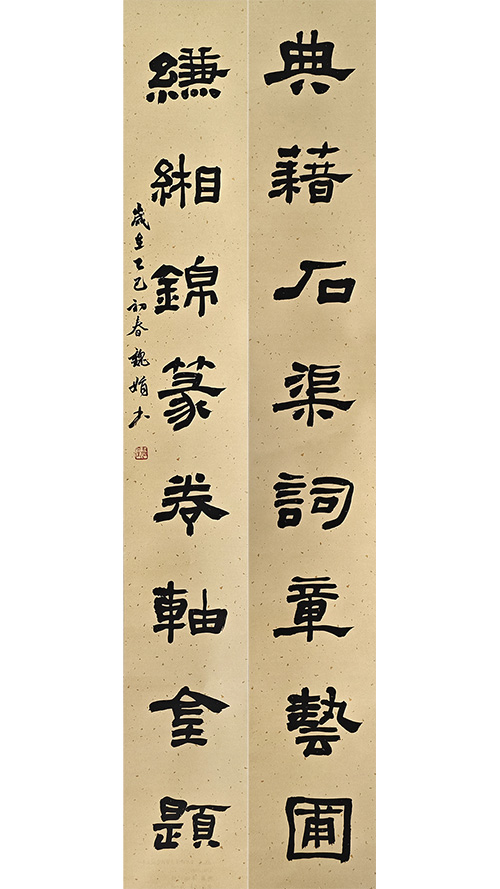 典藉石渠詞章藝圃
縑緗錦篆卷軸金題
歲在乙巳初春魏娟书